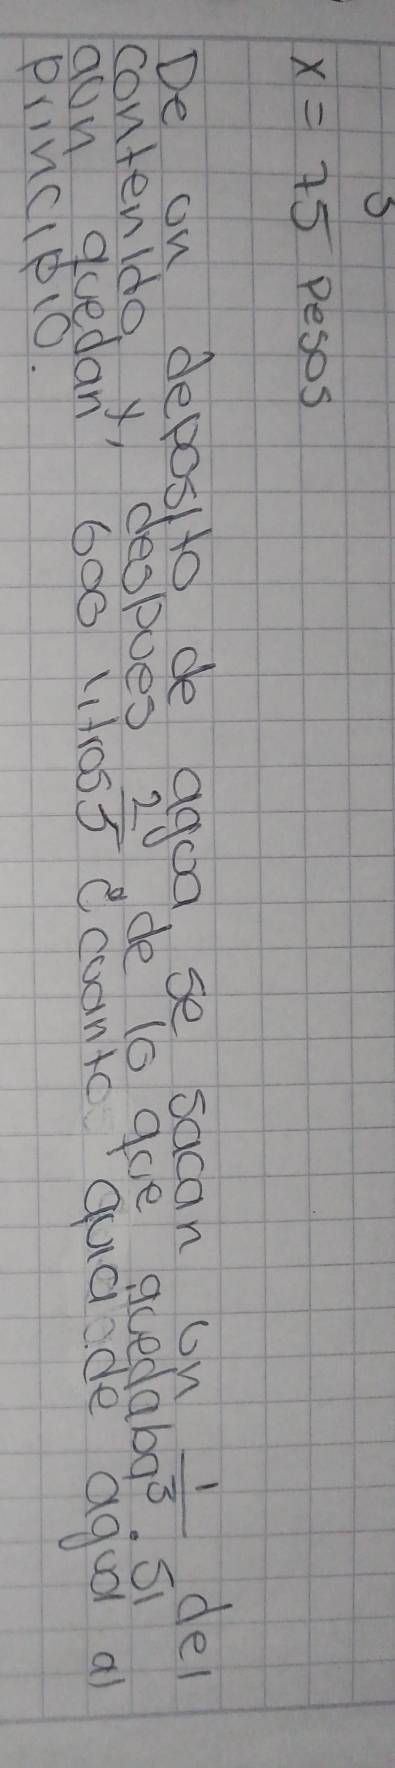 5
x = 75 pesos
De un deposito de agua se sacan un 1/3 del
contenido y, despues 2/5 de lo que quedaba. Si
aun quedan 600 litros ¿cuanto de agua al
principio.